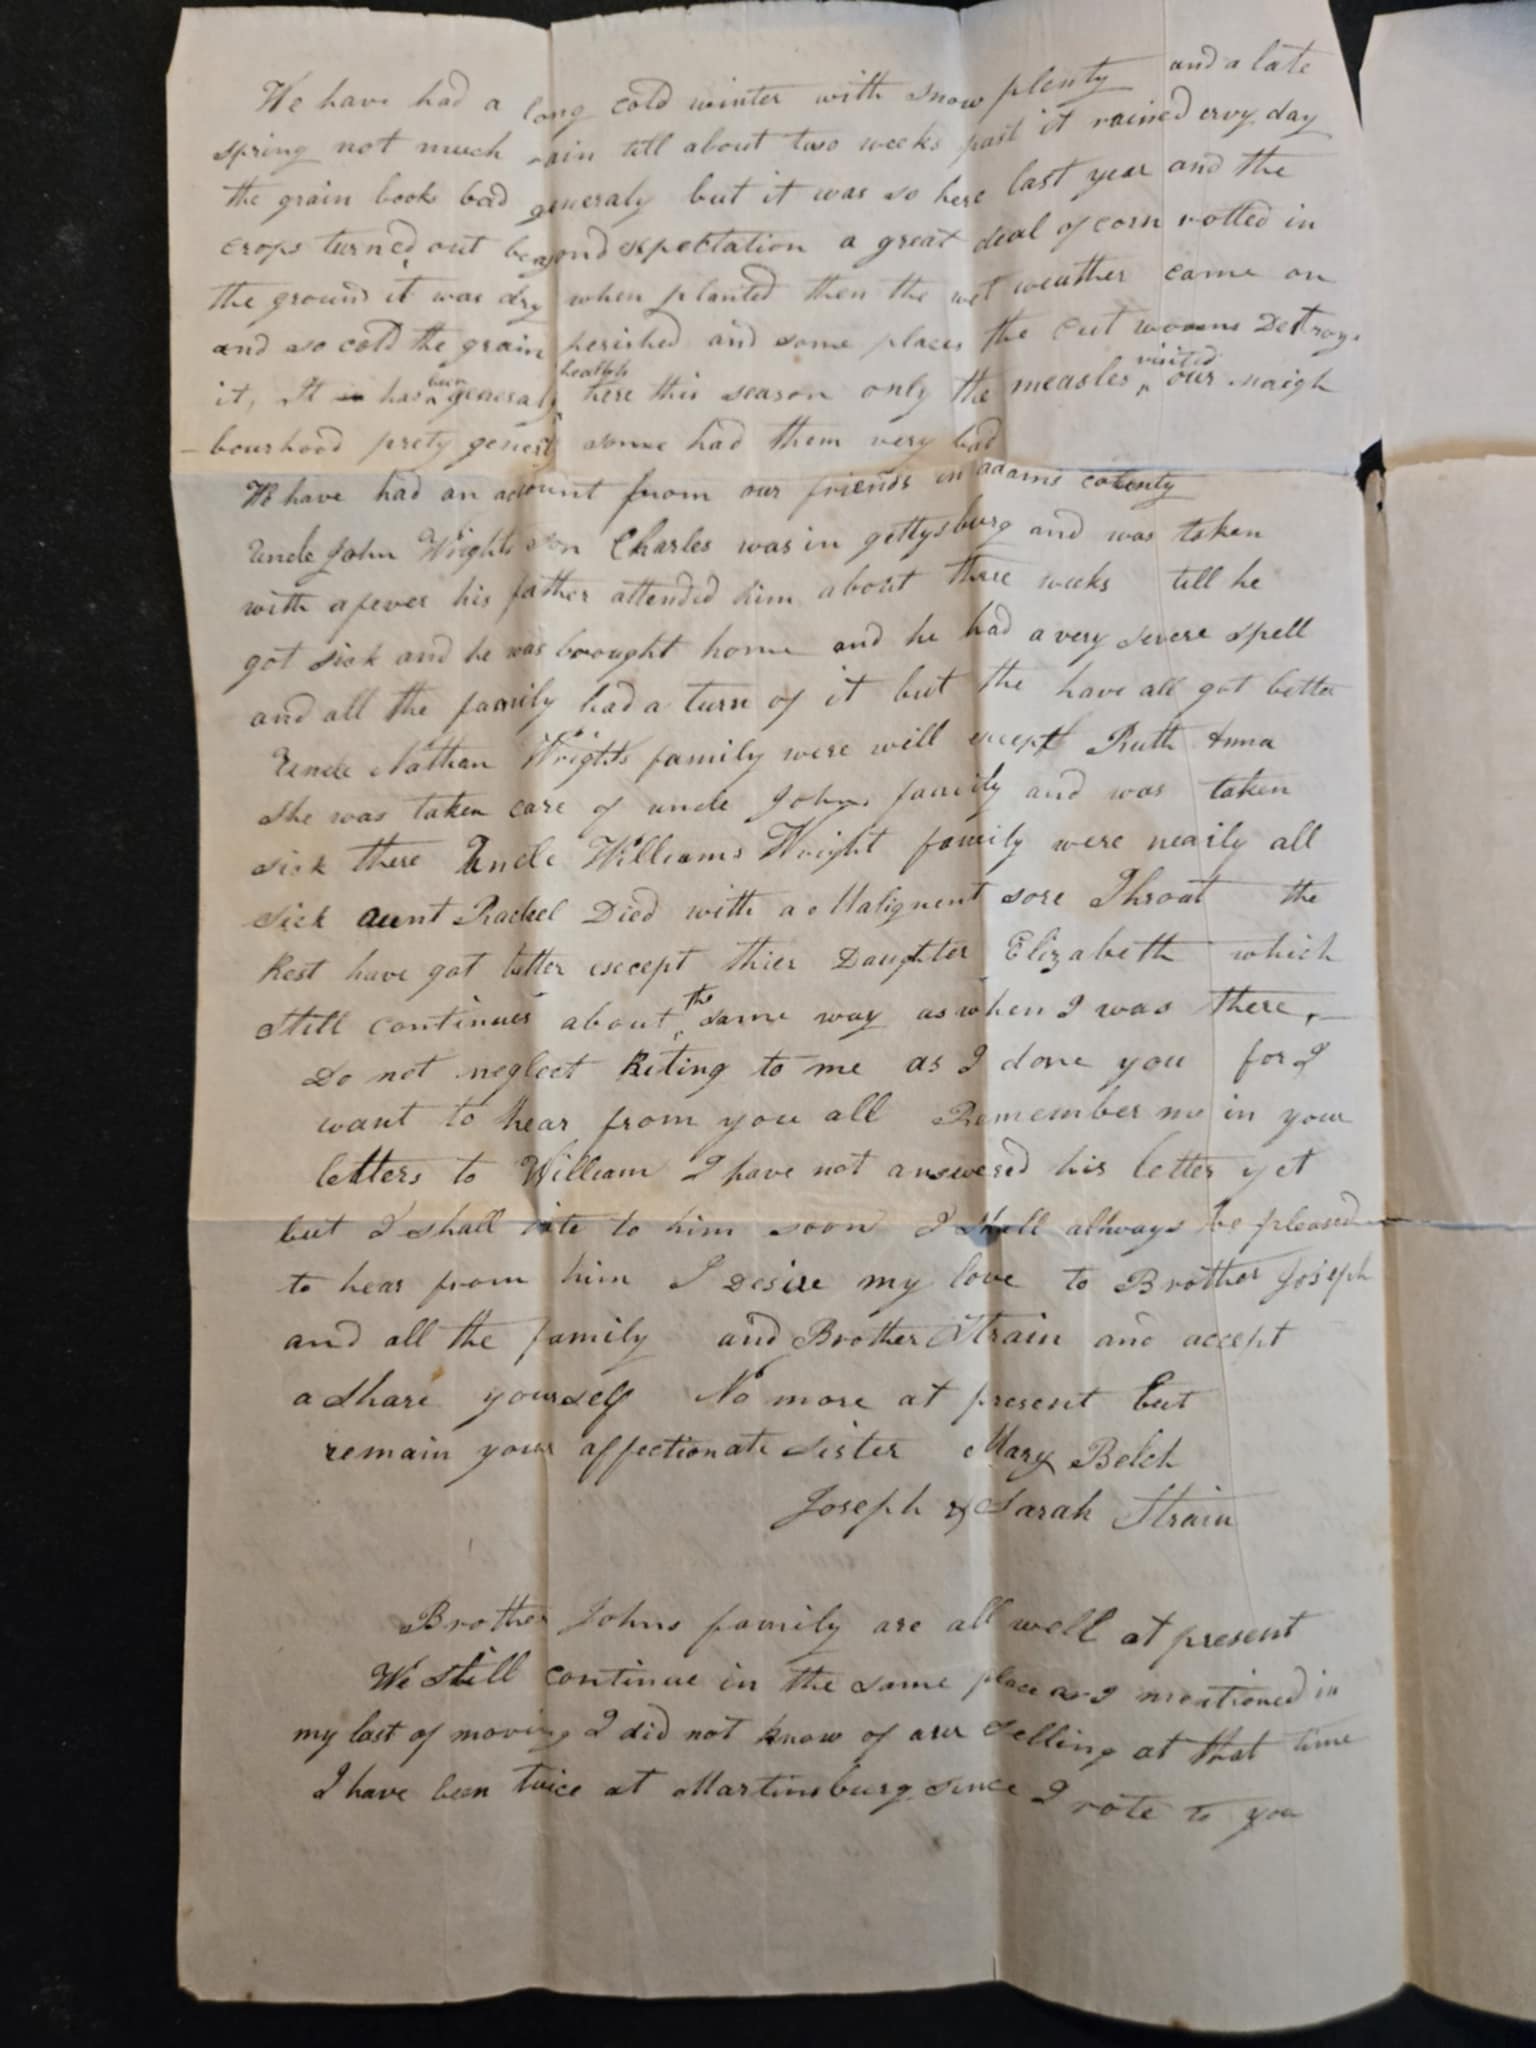 We have had a long cold winter with snow plenty and a late
spring not much rain till about two weeks past it rained evry day
the grain looks bad generaly but it was so here last year and the
crops turned out beyond expectation a great deal of corn rotted in
the ground it was dry when planted then the wet weather came on
and so cold the grain perished and some places the cut worms Destroys
it, It has bun generaly health here this season only the measles visited our naigh
bourhood prety generl some had them very bad
We have had an acount from our friends in adams county
Uncle John Wrights son Charles was in gettysburg and was taken
with a fever his father attended him about three weeks till he
got sick and he was brought home and he had a very severe spell
and all the family had a turn of it but the have all got better
Uncle Nathan Wrights family were will except Ruth Anna
she was taken care of uncle Johns family and was taken
sick there Uncle Williams Wright family were nearly all
sick aunt Rachel Died with a Malignent sore Throat the
Rest have got better except thier Daughter Elizabeth which
still continues about the same way as when I was there,
Do not neglect Riting to me as I done you for I
want to hear from you all Remember me in your
letters to William I have not answered his letter yet
but I shall rite to him soon I shall allways be pleased
to hear from him I Desire my love to Brother Joseph
and all the family and Brother Strain and accept
a share yourself No more at present but
remain your affectionate sister Mary Belch
Joseph & Sarah Strain
Brother Johns family are all well at present
We still continue in the same place as I mentioned in
my last of moving I did not know of our selling at that time
I have been twice at Martinsburg since I rote to you